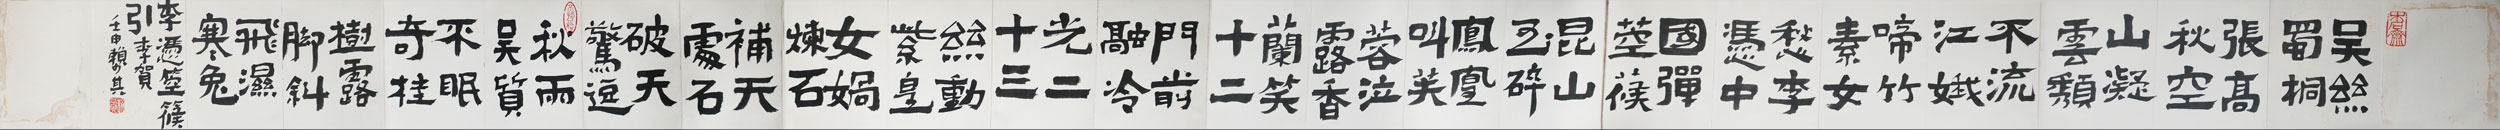 吳絲
蜀桐
張高
秋空
山凝
雲頹
不流
江娥
啼竹
素女
愁李
憑中
國彈
箜篌
昆山
玉碎
鳳凰
叫芙
蓉泣
露香
蘭笑
十二
門前
融冷
光二
十三
絲動
紫皇
女媧
煉石
補天
處石
破天
驚逗
秋雨
吳質
不眠
奇桂
樹露
脚斜
飛濕
寒兔
李憑箜篌
引 李賀
壬申賴少其